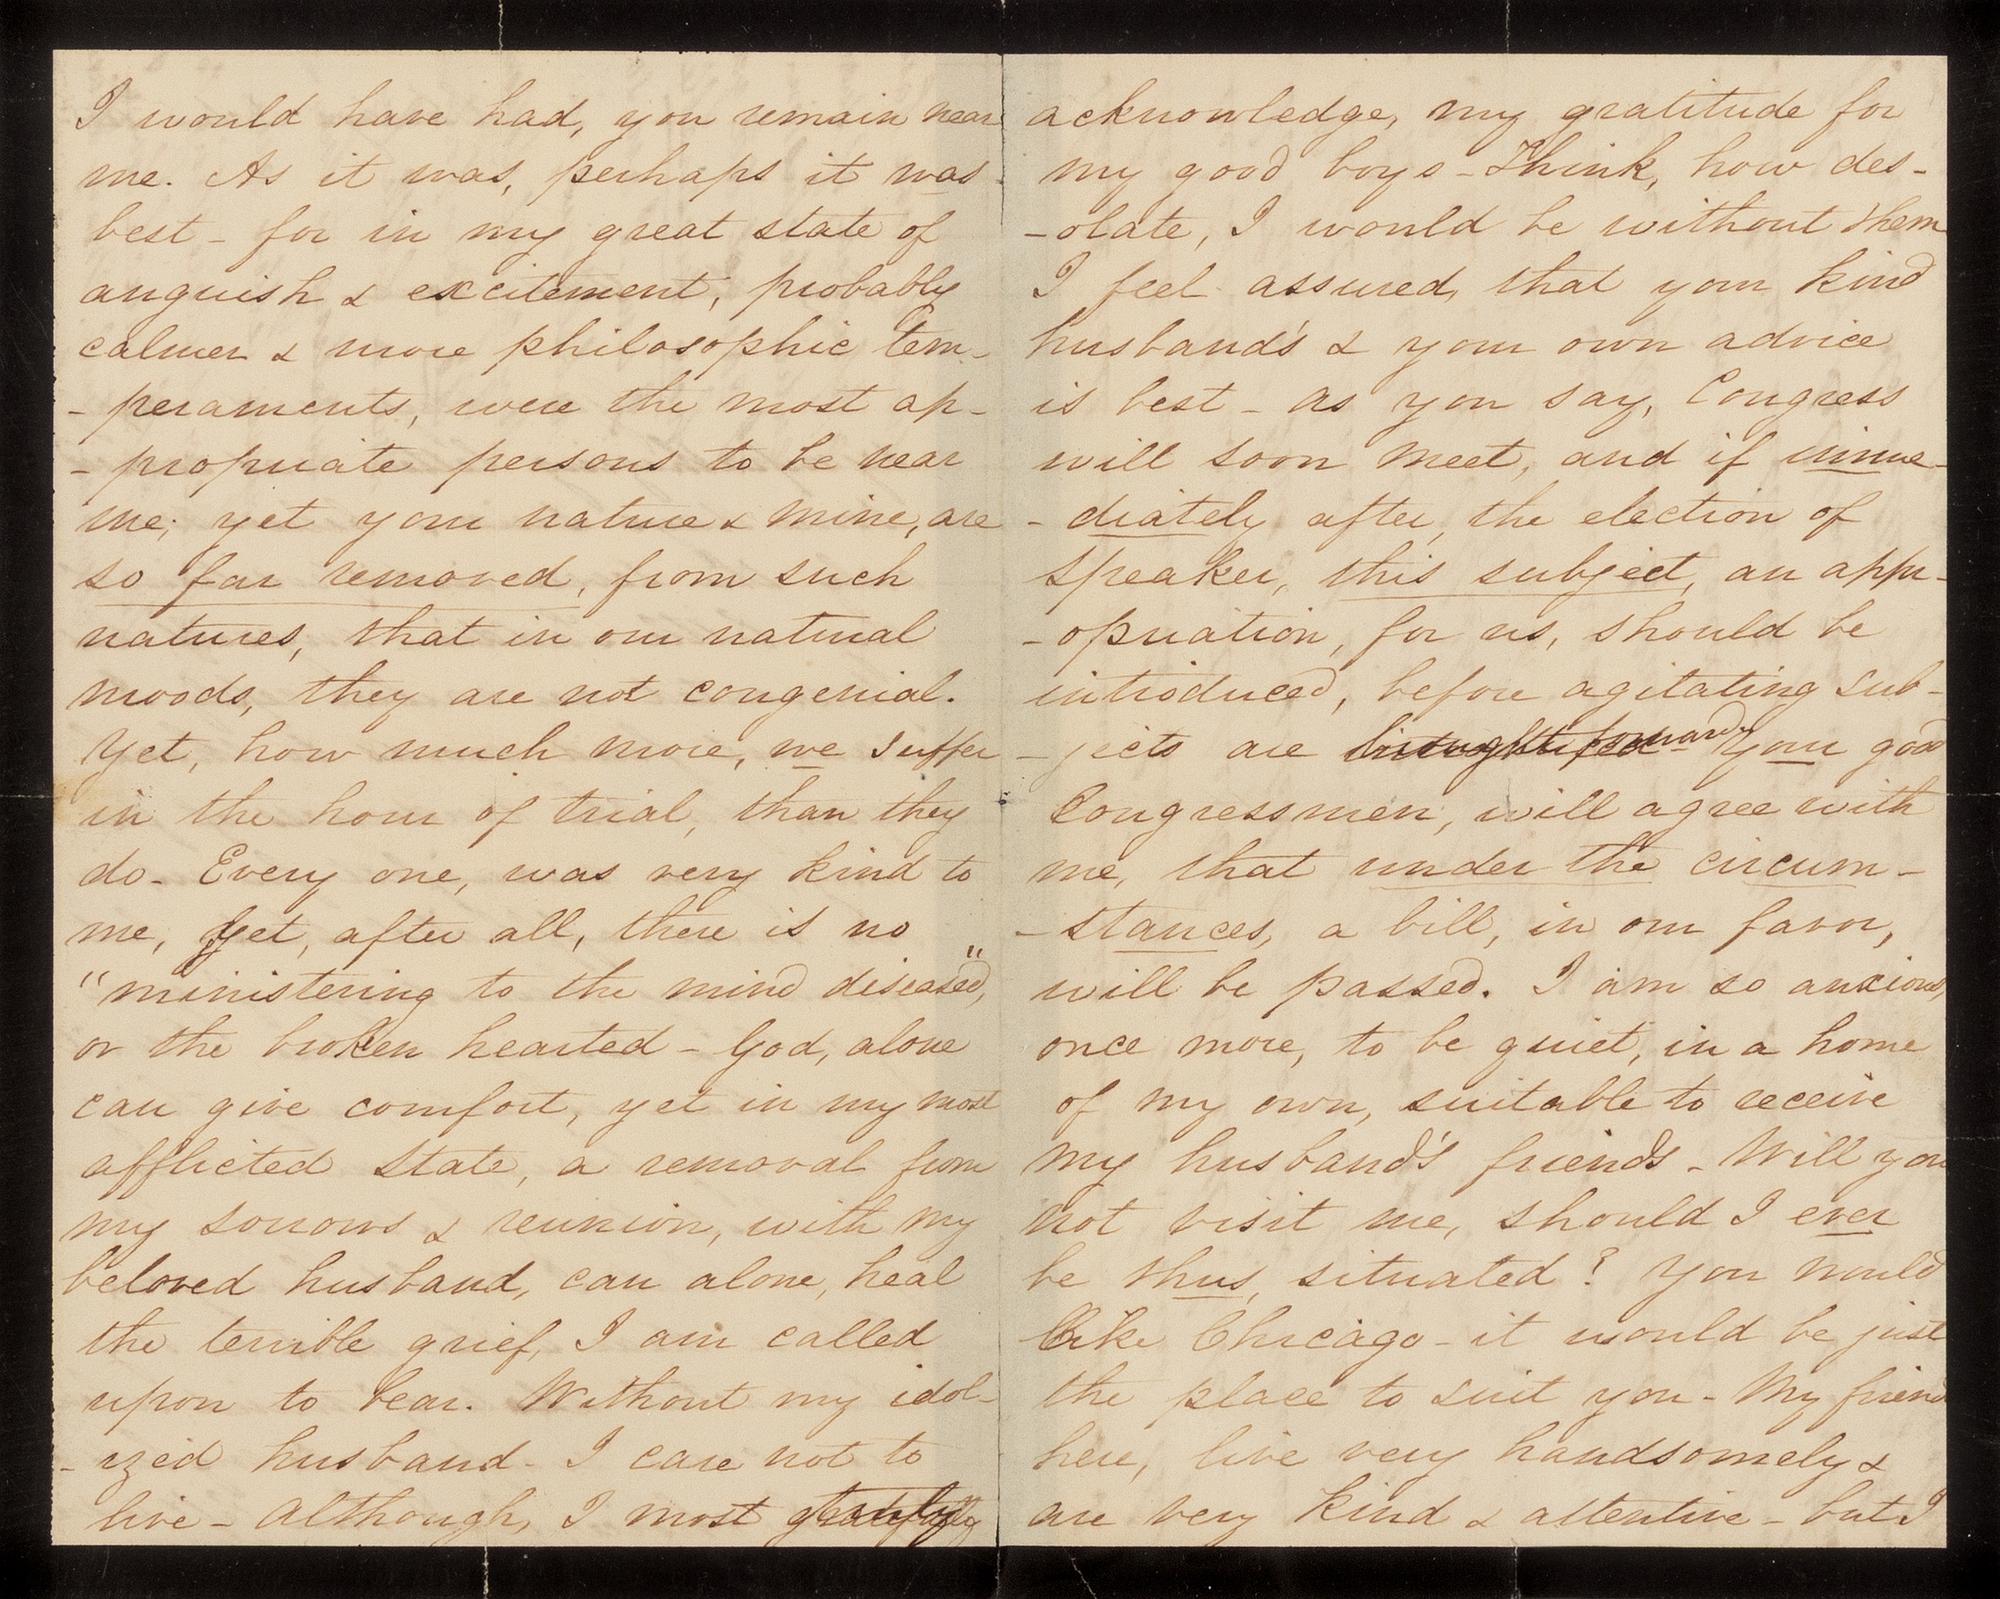 I would have had, you remain near
me. As it was, perhaps it was
best - for in my great state of
anguish & excitement, probably
calmer & more philosophic tem-
- peraments, were the most ap-
- propriate persons to be near
me; yet your nature & mine, are
so far removed, from such
natures, that in our natural
moods, they are not congenial.
Yet, how much more, we suffer
in the hour of trial, than they
do - Every one, was very kind to
me, yet, after all, there is no
"ministering to the mind diseased,"
or the broken hearted - God, alone
can give comfort, yet in my most
afflicted state, a removal from
my sorrows & reunion, with my
beloved husband, can alone, heal
the terrible grief, I am called
upon to bear. Without my idol-
- ized husband - I care not to
live - although, I most gratefully
acknowledge, my gratitude for
my good boys - Think, how des-
- olate, I would be without them
I feel assured, that your kind
husband's & your own advice
is best - as you say, Congress
will soon meet, and if imme-
- diately after, the election of
Speaker, this subject, an appr-
- opriation, for us, should be
introduced, before agitating sub-
- jects are brought forward your good
Congressmen, will agree with
me, that under the circum-
- stances, a bill, in our favor,
will be passed. I am so anxious,
once more, to be quiet, in a home
of my own, suitable to receive
my husband's friends - Will you
not visit me, should I ever
be thus, situated? You would
like Chicago - it would be just
the place to suit you - My friend
here, live very handsomely &
are very kind & attentive - but I